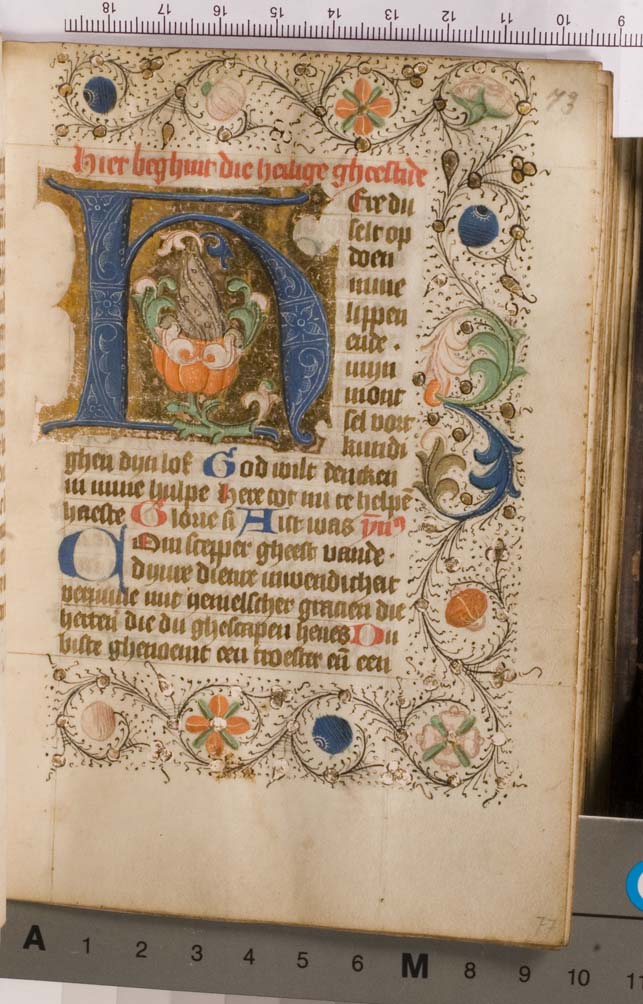 73
hier beghint die heilige gheestide
HEre du
selt op
doen
mine
lippen
ende ·
mijn
mont
sel vort
kundi
ghen dijn lof God wilt dencken
in mine hulpe here tot mi te helpē
haeste Glorie si Alst was ẏmꝰ
Com scepper gheest vande ·
dijnre dienre inwendicheit
veruulle mit hemelscher gracien die
herten die du ghescapen heues Du
biste ghenoemt een troester eñ een
77
18 17 16 15 14 13 12 11 10 9
A 1 2 3 4 5 6 M 8 9 10 11